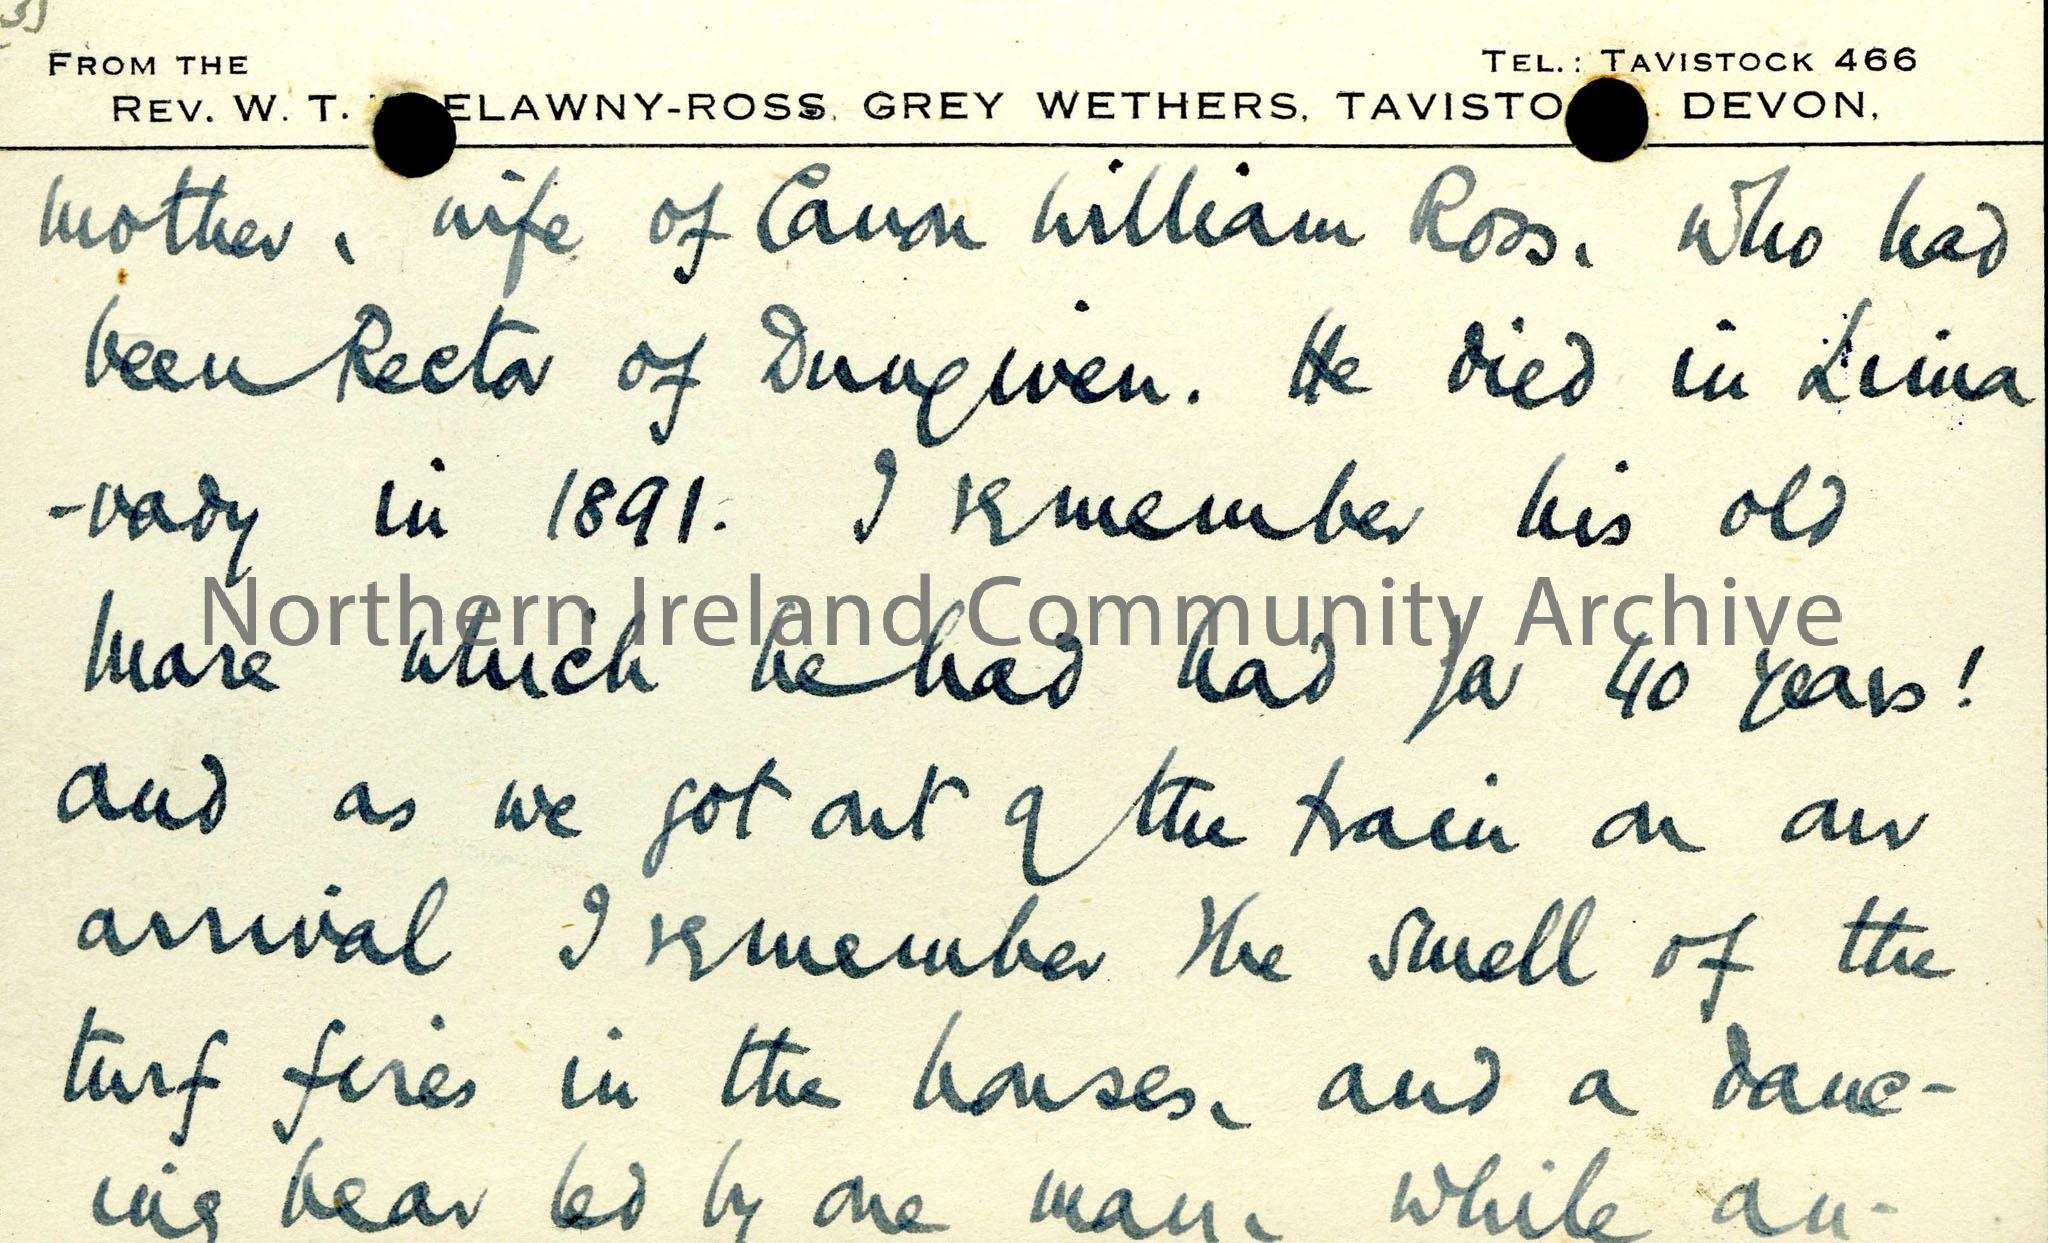 3)
FROM THE
TEL.: TAVISTOCK 466
REV. W. T. ELAWNY-ROSS, GREY WETHERS, TAVISTO DEVON,
mother, wife of Canon William Ross, who had
been Rector of Dungiven. He died in Lima
-vady in 1891. I remember his old
mare which he had had for 40 years!
and as we got out of the train on our
arrival I remember the smell of the
turf fires in the houses, and a danc-
ing bear led by one man, while an-
Northern Ireland Community Archive